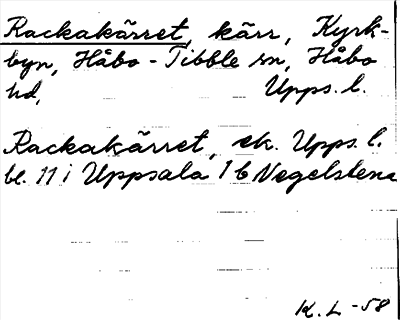 Rackakärret, kärr, Kyrk-
byn, Håbo-Tibble sn, Håbo
hd, Upps. l.
Rackakärret, ek. Upps. l.
bl. 11 i Uppsala 1 b Vegelstena
K. L -58